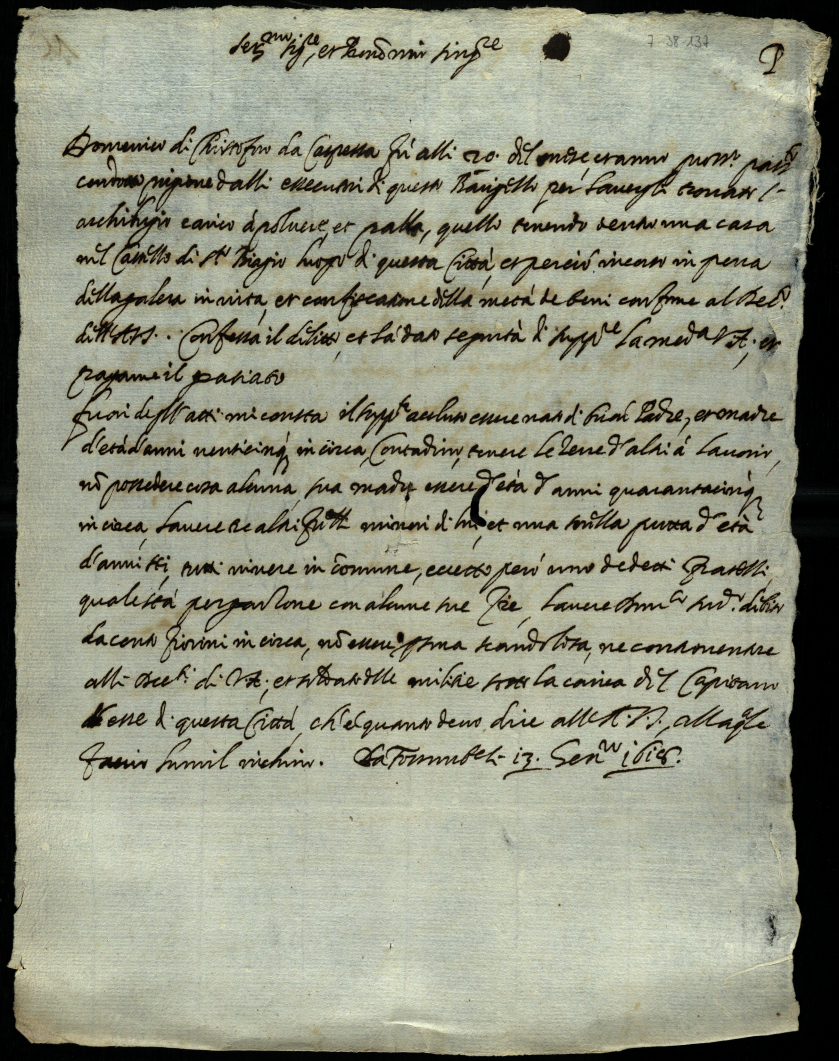 Ser.mo Sig.re, et Prōn mio sing.re
7 38 137
Domenico di Christofaro da fù alli 20. del mese et anno pross.o pass.to
condotto prigione dalli essecutori di questo Bargello per havergli trovato l'
archibugio carico à polvere, et palla, quello tenendo dentro una casa
nel Castello di S.to Biagio luogo di questa Città, et perciò incorso in pena
della galera in vita, et confiscatione della metà de beni conforme al Dec.to
dell'A.V.S. Confessa il delitto, et hà dato seguртà di supp.re la med.a V.A., et
pagarne il
fuori degl'atti mi consta il supp.te essere nato di buoni Padre, et madre
d'età d'anni venticinq, in circa, Contadino, tenere le terre d'altri à lavorio,
nō possedere cosa alcuna, sua madre essere d'età d'anni quarantacinq
in circa, havere altri fr.elli minori di lui, et una sorella putta d'età
d'anni sei, tutti vivere in comune, eccetto però uno de detti fratelli,
quale stà per garzone con alcune sue Zie, havere debito
da cento fiorini in circa, nō essere persona scandolosa, ne contravenire
alli Dec.ti di V.A., et soldato delle militie sotto la carica del Capitano
d'esse di questa Città, ch'è quanto devo dire all'A.V.S., alla q.le
faccio humil inchino. Da 13. Gen.ro 1618.